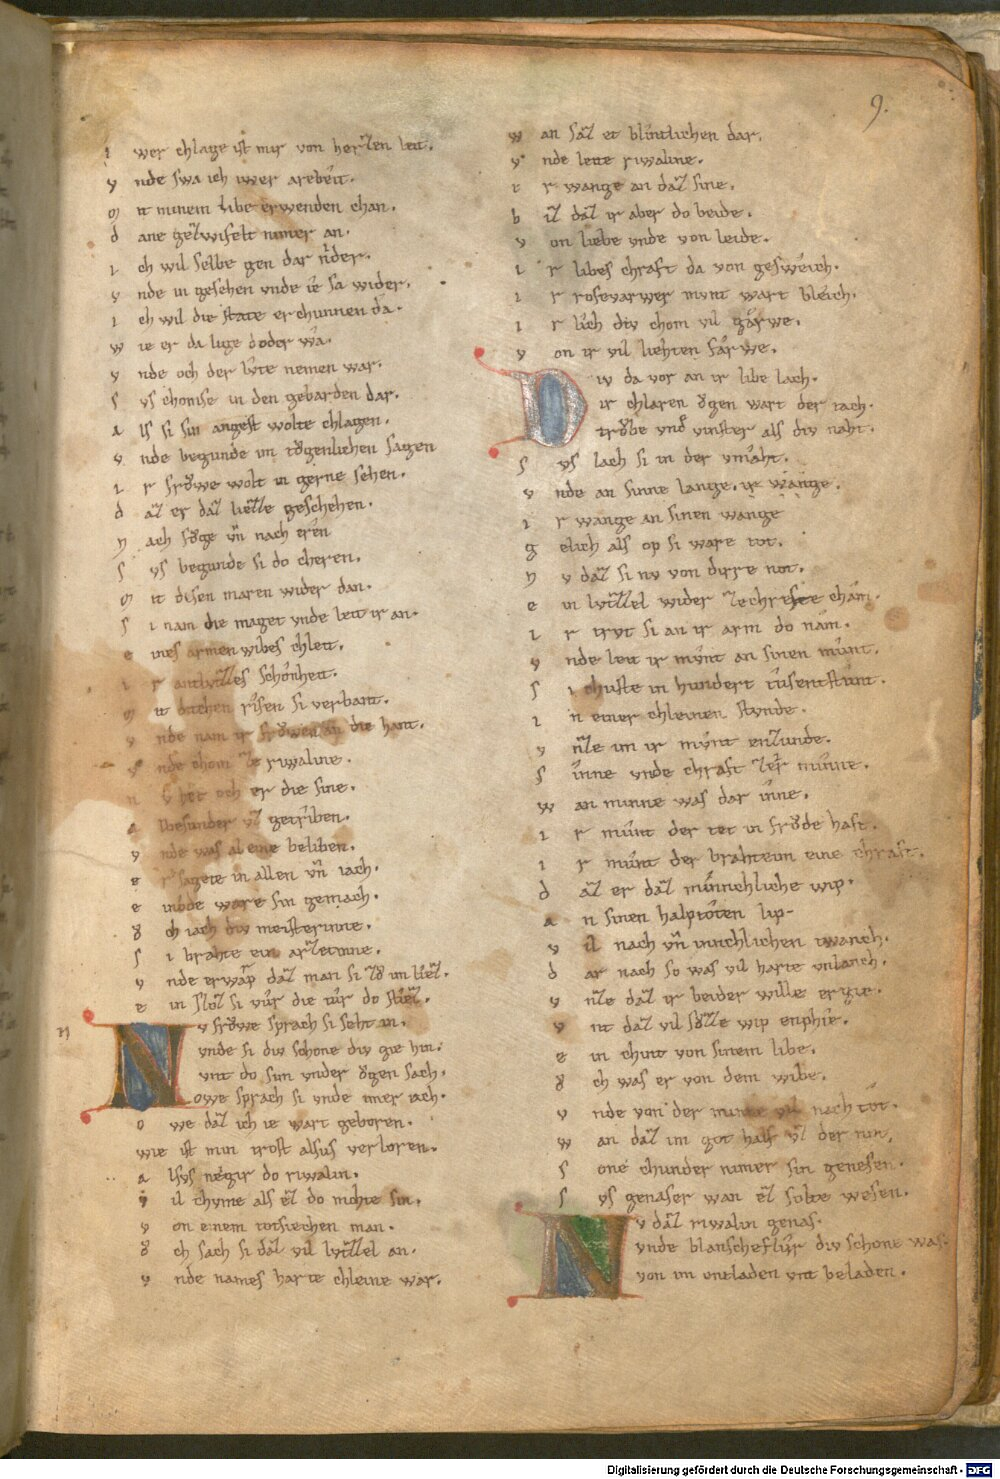 9.
i wer chlage ist mir von herzen leit.
v nde swa ich iwer arebeit.
m it minem libe erwenden chan.
d ane gezwifelt nimer an.
i ch wil selbe gen dar nider.
v nde in gesehen vnde ie sa wider.
i ch wil die state erchunnen da.
w ie er da lige oder wa.
v nde och der lvte nemen war.
s vs chomse in den gebarden dar.
a ls si sin angest wolte chlagen.
v nde begunde im tögenlichen sagen
i r fröwe wolt in gerne sehen.
d az er daz liezze geschehen.
n ach föge vn̄ nach eren
s vs begunde si do cheren.
m it disen maren wider dan.
s i nam die maget vnde leit ir an.
e ines armen wibes chleit.
i r antlvzzes schonheit.
m it dicchen risen si verbant.
v nde nam ir fröwen an die hant.
v nde chom ze riwaline.
n v het och er die sine.
a lbesunder vz getriben.
v nde was al eine beliben.
e r sagete in allen vn̄ iach.
e inöde ware sin gemach.
ö ch iach div meisterinne.
s i brahte ein arzetinne.
v nde erwarp daz man si zö im liez.
e in sloz si vür die tür do stiez.
n
N v fröwe sprach si seht in.
vnde si div schone div gie hin.
vnt do sim vnder ögen sach.
Owe sprach si vnde imer iach.
o we daz ich ie wart geboren.
wie ist min trost alsus verloren.
a lsvs neigir do riwalin.
v il chvme als ez do mohte sin.
v on einem totsiechen man.
ö ch sach si daz vil lvzzel an.
v nde names harte chleine war.
w an saz et blintlichen dar.
v nde leite riwaline.
i r wange an daz sine.
b iz daz ir aber do beide.
v on liebe vnde von leide.
i r libes chraft da von gesweich.
i r rosevarwer mvnt wart bleich.
i r lich div chom vil garwe.
v on ir vil liehten farwe.
D iv da vor an ir libe lach.
ir chlaren ögen wart der tach.
tröbe vnd vinster als div naht.
s vs lach si in der vnmaht.
v nde an sinne lange. ir wange.
i r wange an sinen wange
g elich als op si ware tot.
n v daz si nv von dirre not.
e in lvzzel wider ze chrefte cham.
i r trvt si an ir arm do nam.
v nde leit ir mvnt an sinen munt.
s i chuste in hundert tusentstunt.
i n einer chleinen stvnde.
v nze im ir mvnt enzunde.
s inne vnde chraft zer minne.
w an minne was dar inne.
i r munt der tet in fröde haft.
i r munt der brahte im eine chraft.
d az er daz minnchliche wip.
a n sinen halptoten lip
v il nach vn̄ innchlichen twanch.
d ar nach so was vil harte vnlanch.
v nze daz ir beider wille ergie.
v nt daz vil sözze wip enphie.
e in chint von sinem libe.
ö ch was er von dem wibe.
v nde von der minne vil nach tot.
w an daz im got half vz der not,
s one chunder nimer sin genesen.
s vs genaser wan ez solte wesen.
N v daz riwalin genas.
vnde blanscheflvr div schone was.
von im entladen vnt beladen.
Digitalisierung gefördert durch die Deutsche Forschungsgemeinschaft - DFG